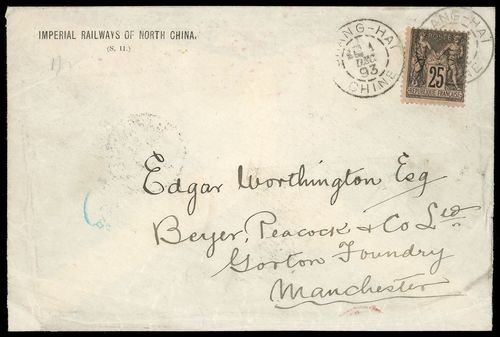 IMPERIAL RAILWAYS OF NORTH CHINA.
(S. H.)
SHANG-HAI
1
DEC
93
CHINE
25
REPUBLIQUE FRANÇAISE
Edgar Worthington Esq
Beyer, Peacock & Co Ltd
Gorton Foundry
Manchester